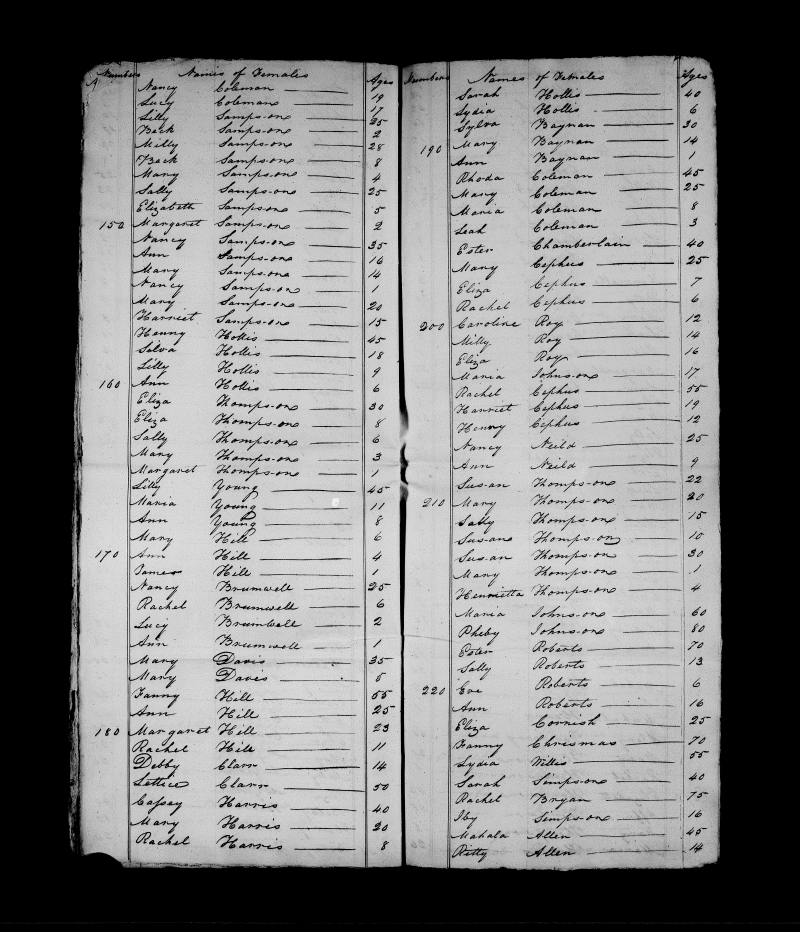 Numbers Names of Females Ages
Nancy Coleman 19
Lucy Colemans 17
Lilly Sampson 25
Back Sampson 2
Milly Sampson 28
Back Sampson 8
Mary Sampson 4
Sally Sampson 25
Elizabeth Sampson 5
150 Margaret Sampson 2
Nancy Sampson 35
Ann Sampson 16
Mary Sampson 14
Nancy Sampson 1
Mary Sampson 20
Harriet Sampson 15
Henny Hollis 45
Silva Hollis 18
Lilly Hollis 9
160 Ann Hollis 6
Eliza Thompson 30
Eliza Thompson 8
Sally Thompson 6
Mary Thompson 3
Margaret Thompson 1
Lilly Young 45
Maria Young 11
Ann Young 8
Mary Hill 6
170 Ann Hill 4
James Hill 1
Nancy Brumwell 25
Rachel Brumwell 6
Lucy Brumwell 2
Ann Brumwell 1
Mary Davis 35
Mary Daves 5
Fanny Hill 55
Ann Hill 25
180 Margaret Hill 23
Rachel Hill 11
Debby Clarr 14
Lettice Clarr 50
Cassey Harris 40
Mary Harris 20
Rachel Harris 8
Numbers Names of Females Ages
Sarah Hollis 40
Lydia Hollis 6
Sylva Baynan 30
190 Mary Baynan 14
Ann Baynan 1
Rhoda Coleman 45
Mary Coleman 25
Maria Coleman 8
Leah Coleman 3
Ester Chamberlain 40
Mary Cephus 25
Eliza Cephus 7
Rachel Cephus 6
200 Caroline Roy 12
Milly Roy 14
Eliza Roy 16
Maria Johnson 17
Rachel Cephus 55
Harriet Cephus 19
Henny Cephus 12
Nancy Neild 25
Ann Neild 9
Susan Thompson 22
210 Mary Thompson 20
Sally Thompson 15
Susans Thompson 10
Susan Thompson 30
Mary Thompson 1
Henrietta Thompson 4
Maria Johnson 60
Pheby Johnson 80
Ester Roberts 70
Sally Roberts 13
220 Eve Roberts 6
Ann Roberts 16
Eliza Cornish 25
Fanny Chrismas 70
Lydia Willis 55
Sarah Simpson 40
Rachel Bryan 75
Iby Simpson 16
Mahala Allen 45
Ritty Allen 14